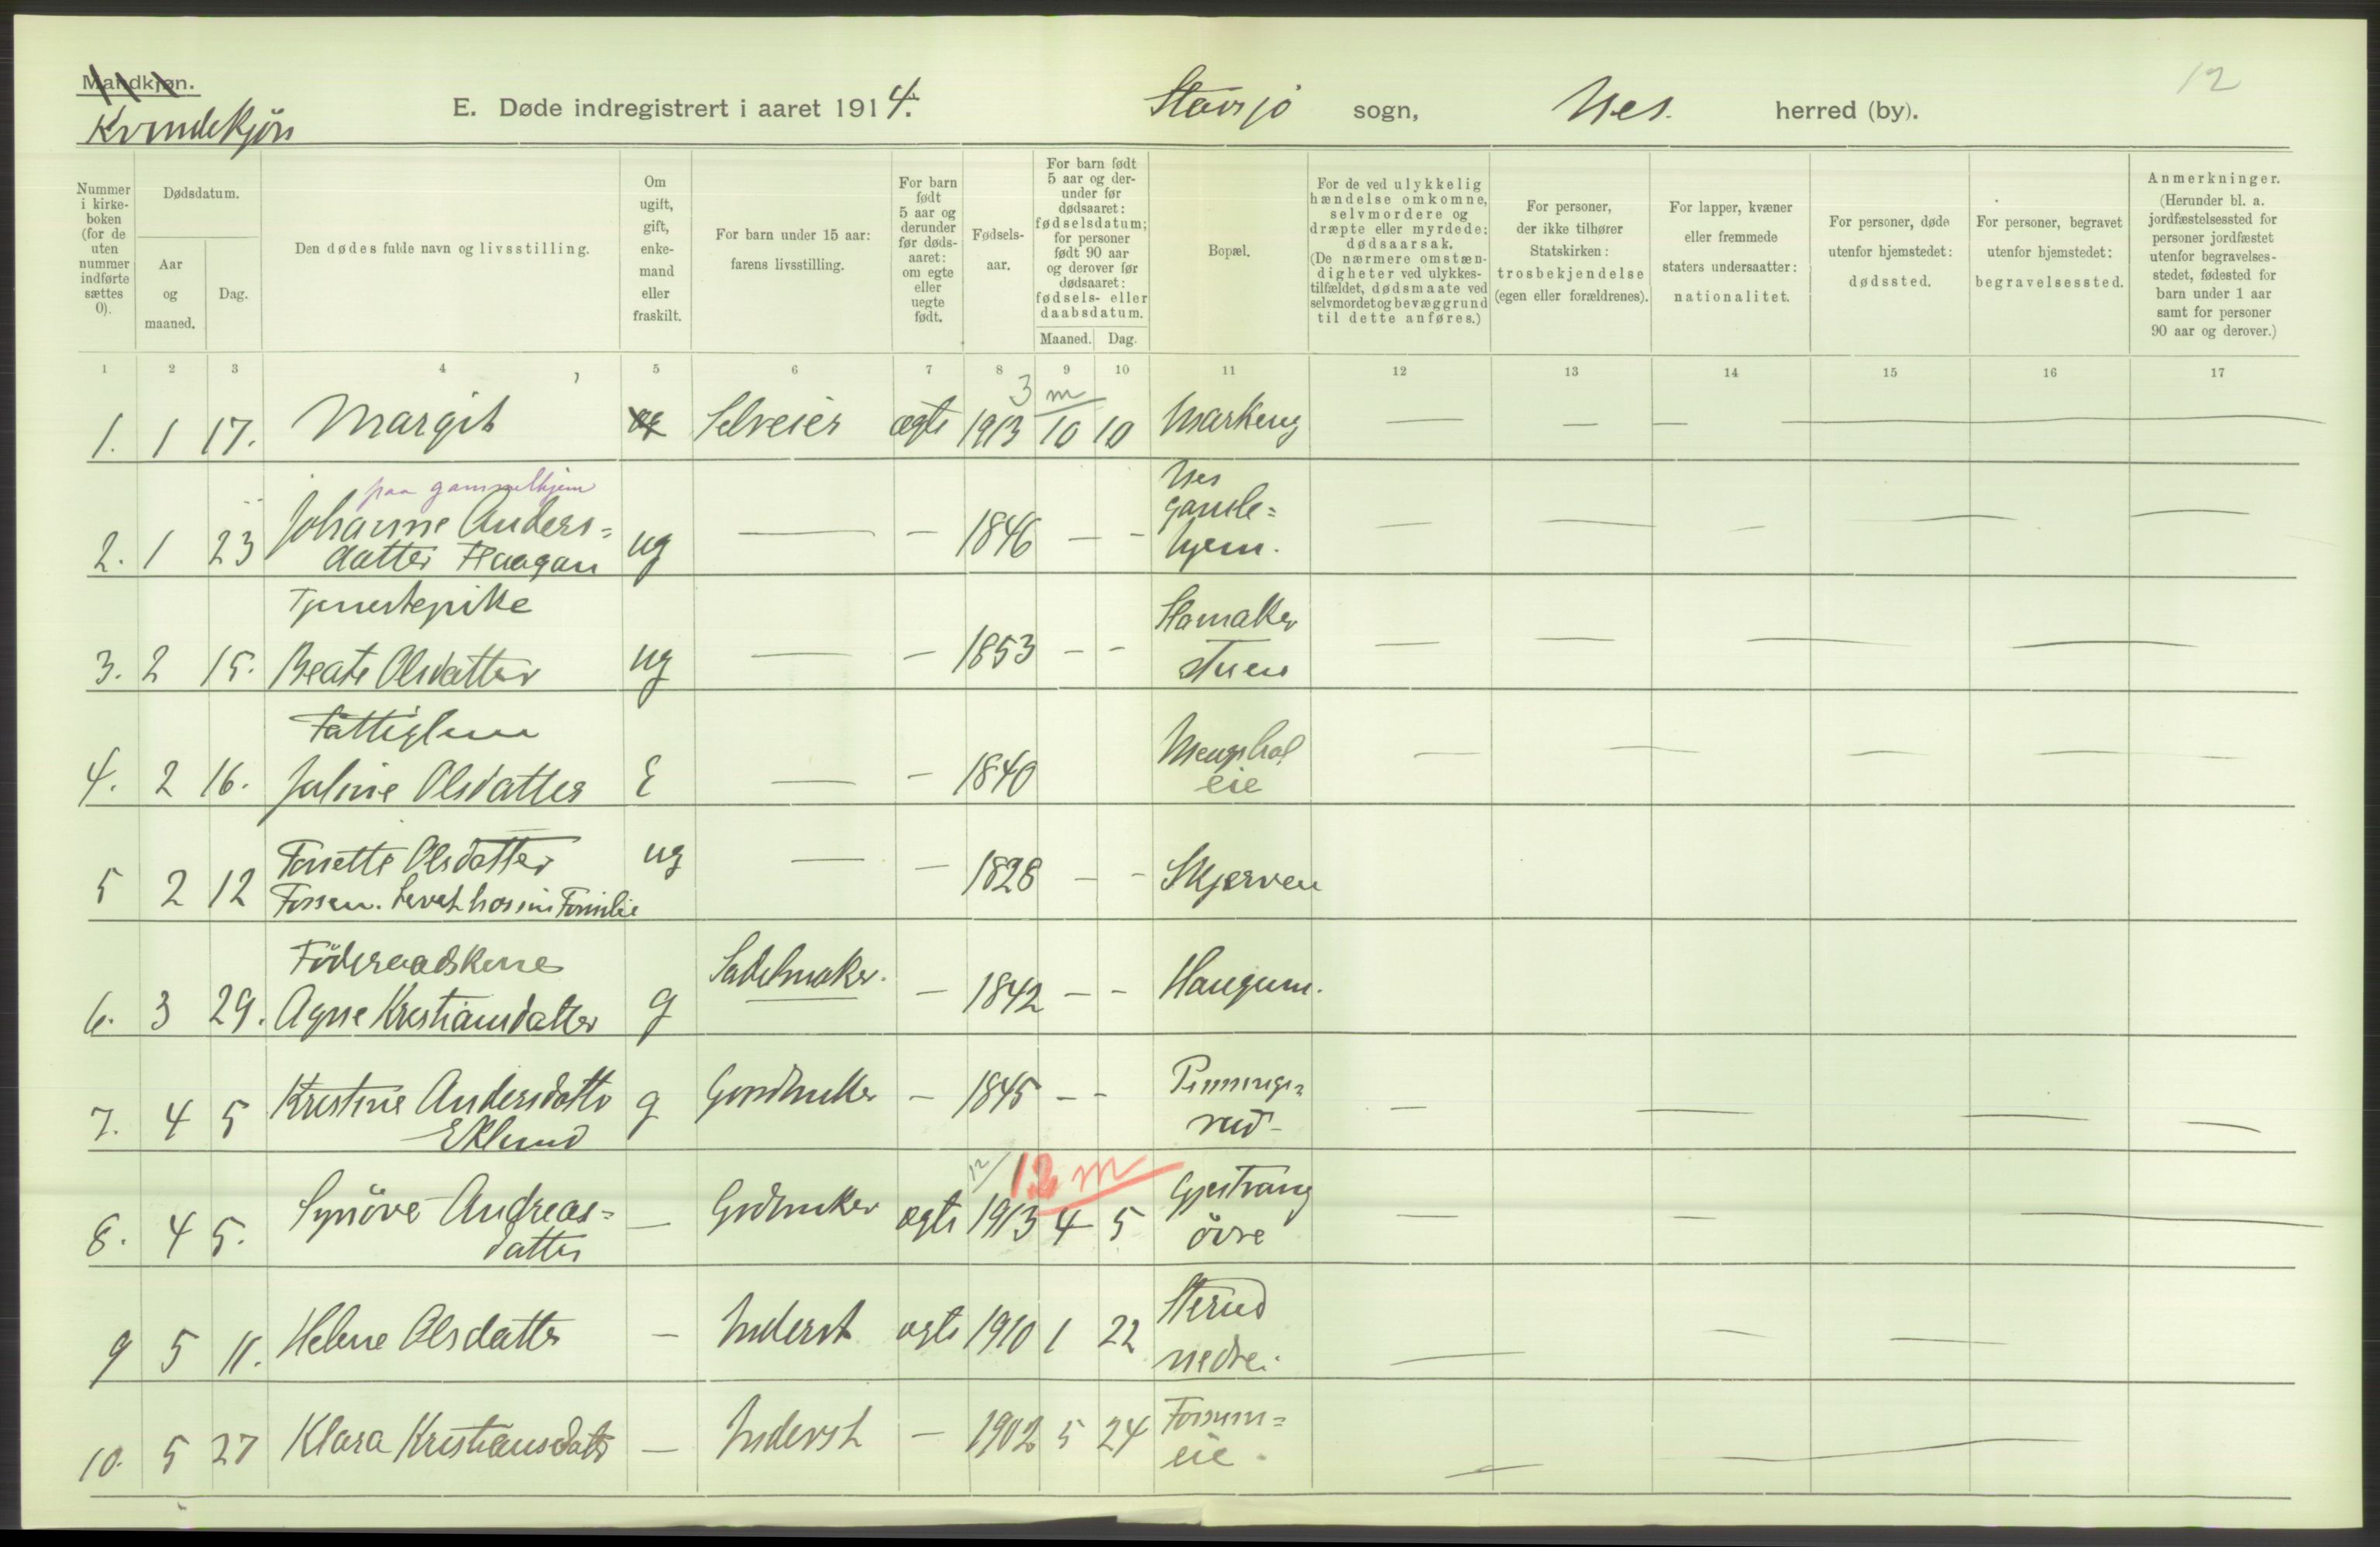 Mandkjøn.
Kvindekjøn
E. Døde indregistrert i aaret 1914.
Stavsjø sogn, Nes. herred (by).
12
Nummer i kirke-boken (for de uten nummer indførte sættes 0).
Dødsdatum.
Aar og maaned.
Dag.
Den dødes fulde navn og livsstilling.
Om ugift, gift, enke-mand eller fraskilt.
For barn under 15 aar: farens livsstilling.
For barn født 5 aar og derunder før døds-aaret: om egte eller uegte født.
Fødsels-aar.
For barn født 5 aar og der-under før dødsaaret: fødselsdatum; for personer født 90 aar og derover før dødsaaret: fødsels- eller daabsdatum.
Maaned. Dag.
Bopæl.
For de ved ulykkelig hændelse omkomne, selvmordere og dræpte eller myrdede: dødsaarsak. (De nærmere omstæn-digheter ved ulykkes-tilfældet, dødsmaate ved selvmordet og bevæggrund til dette anføres.)
For personer, der ikke tilhører Statskirken: trosbekjendelse (egen eller forældrenes).
For lapper, kvæner eller fremmede staters undersaatter: nationalitet.
For personer, døde utenfor hjemstedet: dødssted.
For personer, begravet utenfor hjemstedet: begravelsessted.
Anmerkninger. (Herunder bl. a. jordfæstelsessted for personer jordfæstet utenfor begravelses-stedet, fødested for barn under 1 aar samt for personer 90 aar og derover.)
1 2 3 4 5 6 7 8 9 10 11 12 13 14 15 16 17
3 m
1. 1 17. Margit ug Selveier ægte 1913 10 10 Markeng — — — —
paa gammelhjem
Nes
2. 1 23 Johanne Anders= ug — — 1846 — - gamle= — — — — —
datter Haagan hjem.
Tjenestepike
3. 2 15. Beate Olsdatter ug — — 1853 - - Hamaker — — — —
stuen
Fattiglem
4. 2 16. Juline Olsdatter E — — 1840 — — — — —
eie
5 2 12 Olsdatter ug — — 1828 - - Skjerven
Fossen. Levet hos sin Familie
Føderaadskone
6. 3 29. Agne Kristiansdatter g Sadelmaker. — 1842 - - Haugum.
7. 4 5 Kristine Andersdatter g Gardbruker — 1845 - - — — — —
Eklund rud
12/ 12 m
8. 4 5. Synöve Andreas= — Gardbruker ægte 1913 4 5 Gjestvang — — —
datter övre
9 5 11. Helene Olsdatter — Inderst ægte 1910 1 22 Sterud — — —
nedre.
10. 5 27 Klara Kristiansdatter — Inderst — 1902 5 24 — —
eie.